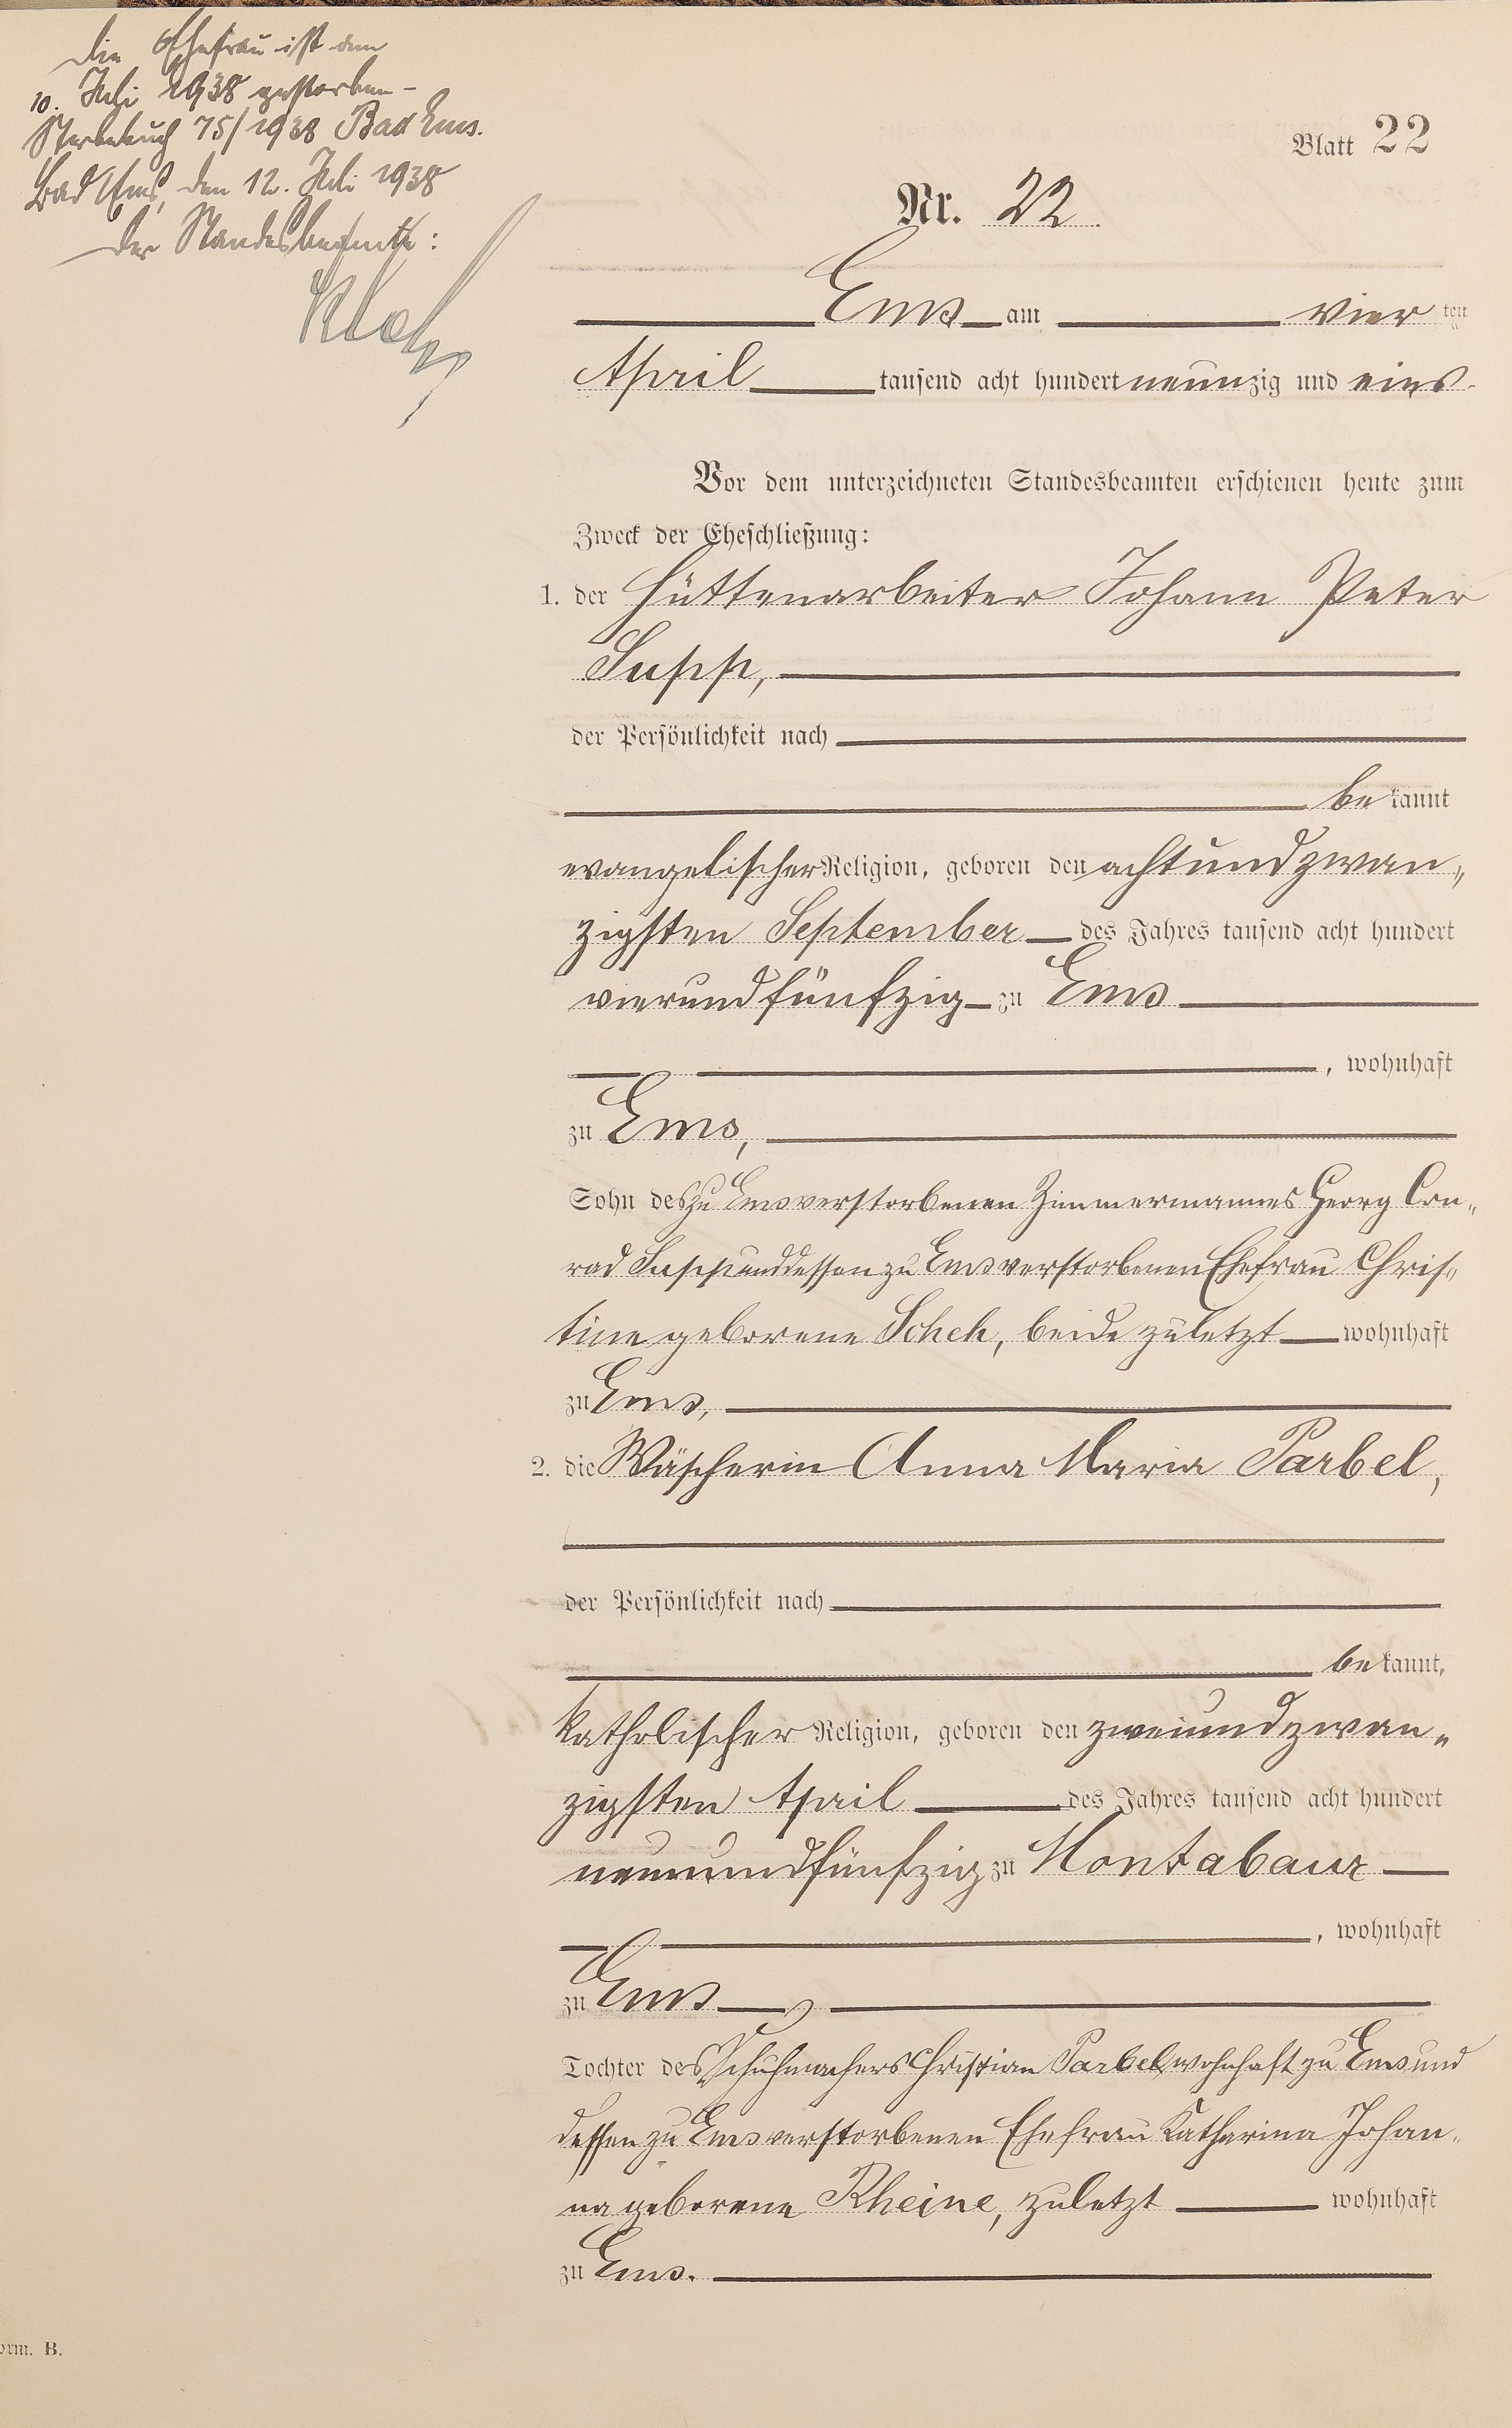 Die Ehefrau ist am
10. Juli 1938 gestorben -
Sterbebuch 75/1938 Bad Ems.
Bad Ems, den 12. Juli 1938
Der Standesbeamte:
Blatt 22
Nr. 22
Ems am vier ten
April tausend acht hundert neunzig und eins
Vor dem unterzeichneten Standesbeamten erschienen heute zum
Zweck der Eheschließung:
1. der Hüttenarbeiter Johann Peter
Supp,
der Persönlichkeit nach
be kannt
evangelischer Religion, geboren den achtundzwan„
zigsten September des Jahres tausend acht hundert
vierundfünfzig zu Ems
, wohnhaft
zu Ems,
Sohn des zu Ems verstorbenen Zimmermannes Georg Con„
rad Supp und dessen zu Ems verstorbenen Ehefrau Chris„
tine geborene Scheh, beide zuletzt wohnhaft
zu Ems,
2. die Wäscherin Anna Maria Parbel,
der Persönlichkeit nach
be kannt,
katholischer Religion, geboren den zweiundzwan„
zigsten April des Jahres tausend acht hundert
neunundfünfzig zu Montabaur
, wohnhaft
zu Ems,
Tochter des Schuhmachers Christian Parbel, wohnhaft zu Ems und
dessen zu Ems verstorbenen Ehefrau Katharina Johan„
na geborene Rheine, zuletzt wohnhaft
zu Ems.
orm. B.